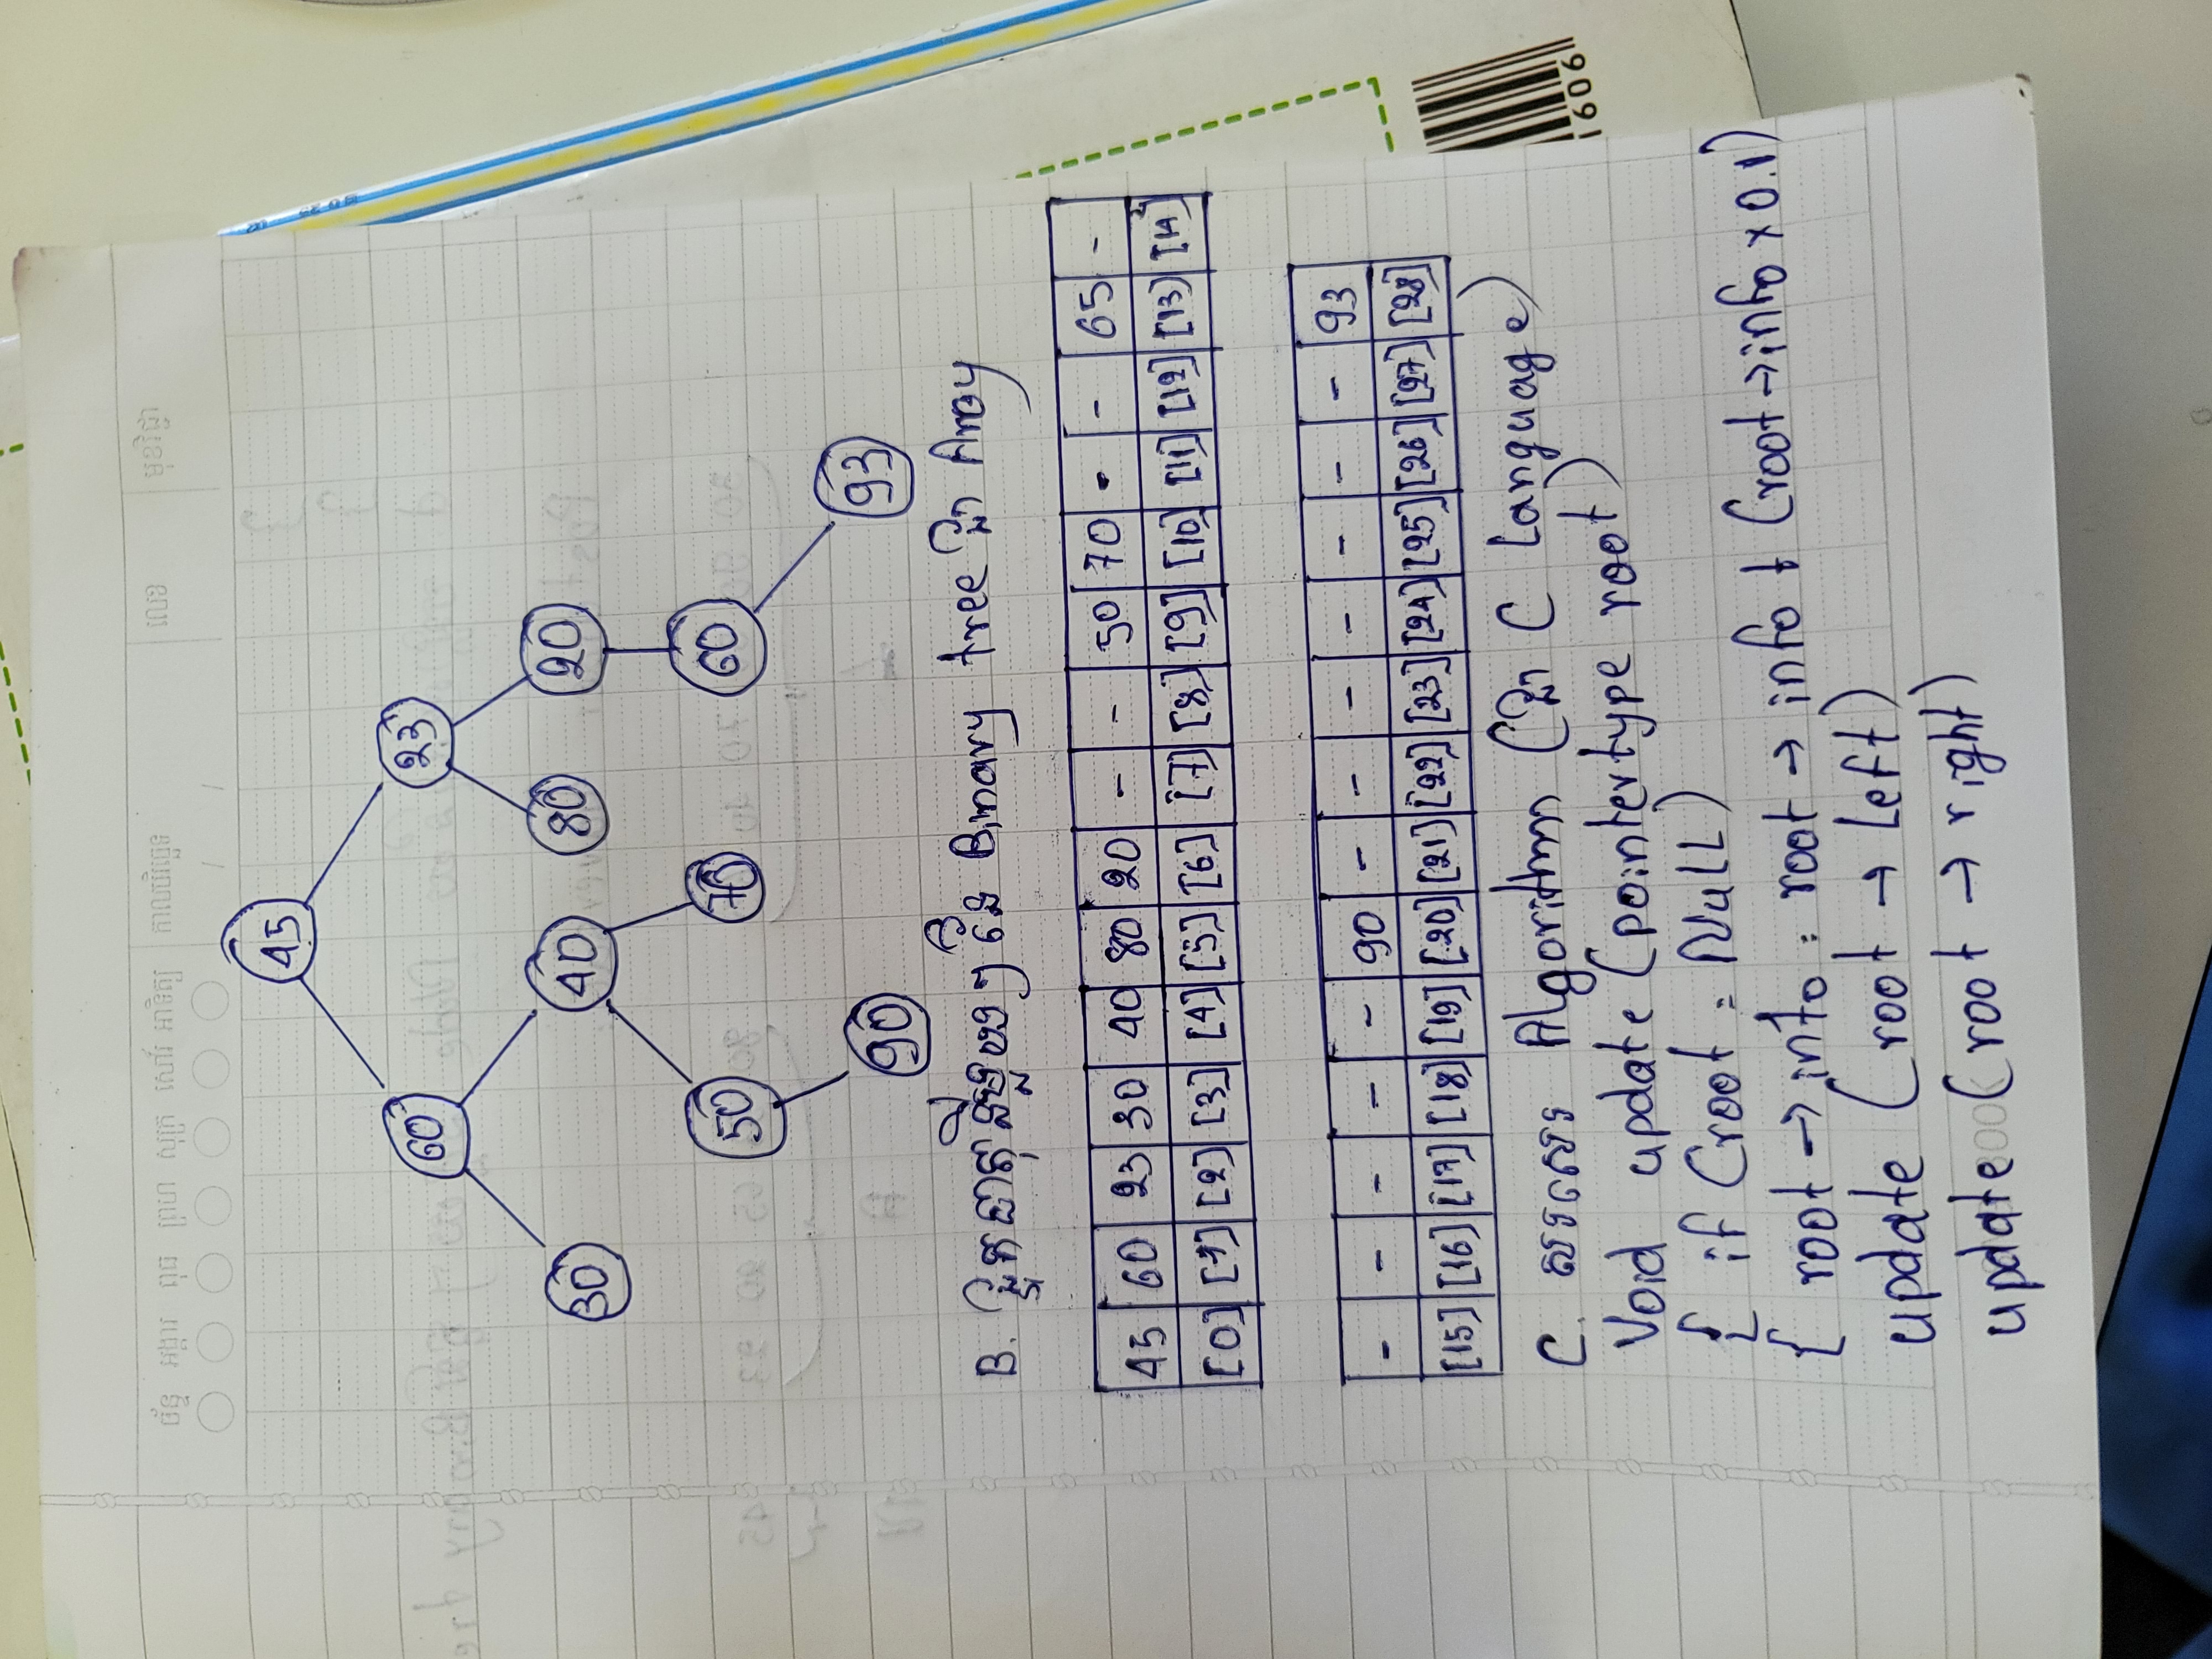 ច័ន្ទ អង្គារ ពុធ ព្រហ សុក្រ សៅរ៍ អាទិត្យ កាលបរិច្ឆេទ លេខ មុខវិជ្ជា
/ /
45
60 23
30 40 80 20
50 70 60
90 93
B. ផ្ទុកធាតុនីមួយៗ នៃ Binary tree ជា Array
45 60 23 30 40 80 20 - - 50 70 - - 65 -
[0] [1] [2] [3] [4] [5] [6] [7] [8] [9] [10] [11] [12] [13] [14]
- - - - - 90 - - - - - - - 93
[15] [16] [17] [18] [19] [20] [21] [22] [23] [24] [25] [26] [27] [28]
C. សរសេរ Algorithm (ជា C Language)
Void update (pointertype root)
{ if (root = Null)
{ root → info = root → info + (root → info × 0.1)
update (root → left)
update (root → right)
1606